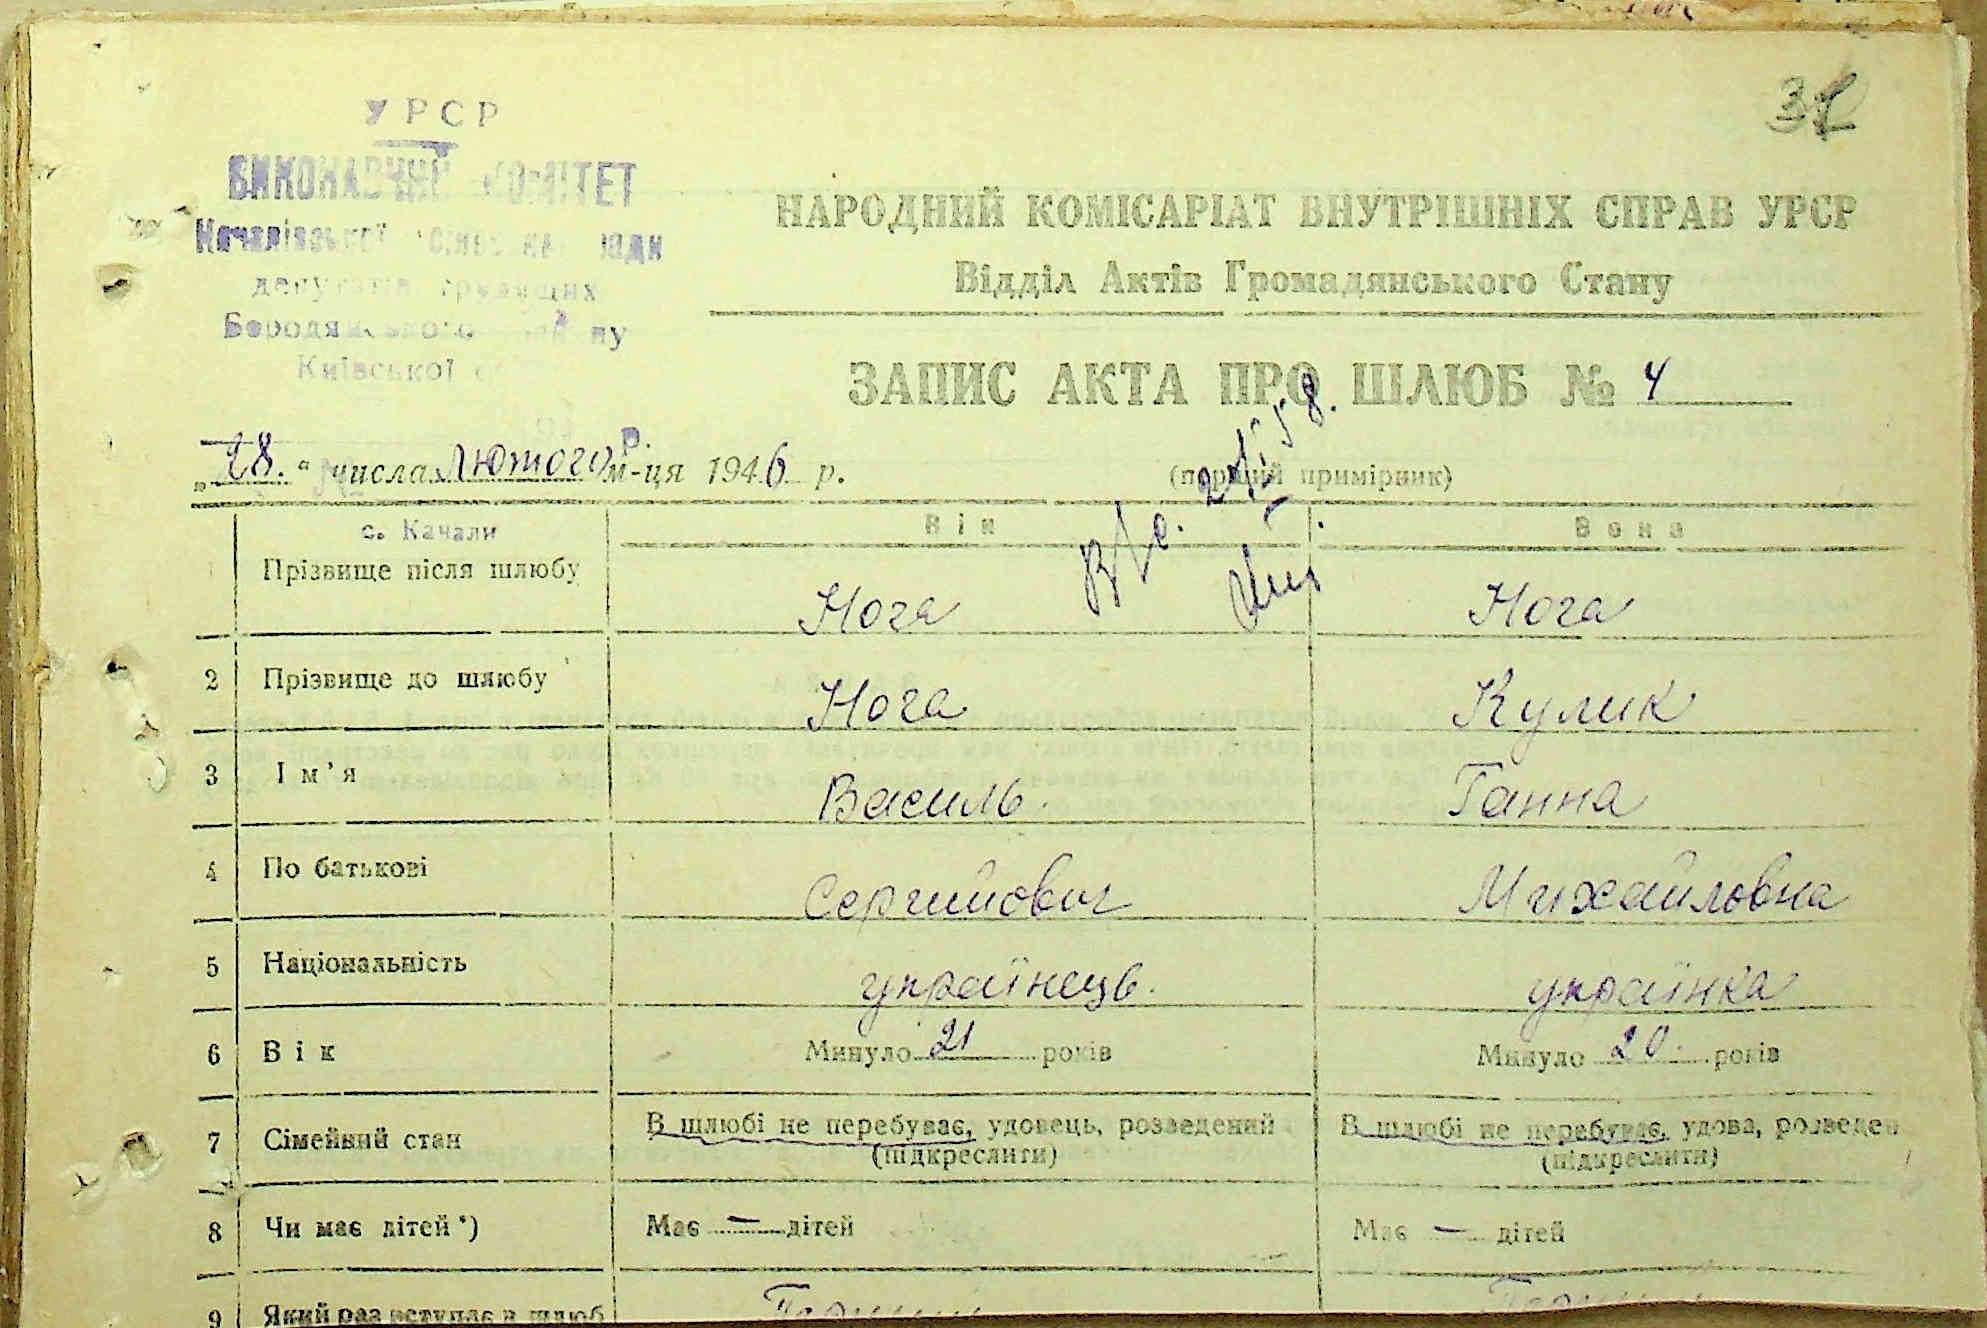 31
УРСР
ВИКОНАВЧИЙ КОМІТЕТ
Качалівської сільської ради
депутатів трудящих
Бородянського району
Київської
НАРОДНИЙ КОМІСАРІАТ ВНУТРІШНІХ СПРАВ УРСР
Відділ Актів Громадянського Стану
ЗАПИС АКТА ПРО ШЛЮБ № 4
„28.“ числа лютого м-ця 1946 р.
(перший примірник)
с. Качали
Він Вона
Прізвище після шлюбу Нога Нога
2 Прізвище до шлюбу Нога Кулик
3 Ім’я Василь. Ганна
4 По батькові Сергийович Михайловна
5 Національність українець. українка
6 Вік Минуло 21 років Минуло 20. років
7 Сімейний стан В шлюбі не перебуває, удовець, розведений В шлюбі не перебуває, удова, розведен
(підкреслити) (підкреслити)
8 Чи має дітей*) Має — дітей Має — дітей
9 Який раз вступає в шлюб Первий Первий